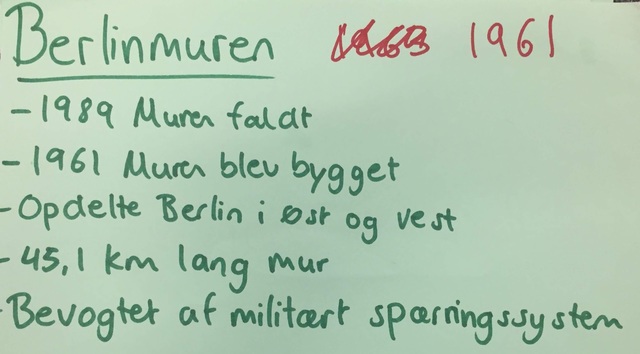 Berlinmuren 1961
- 1989 Muren faldt
- 1961 Muren blev bygget
- Opdelte Berlin i øst og vest
- 45,1 km lang mur
- Bevogtet af militært spærringssystem